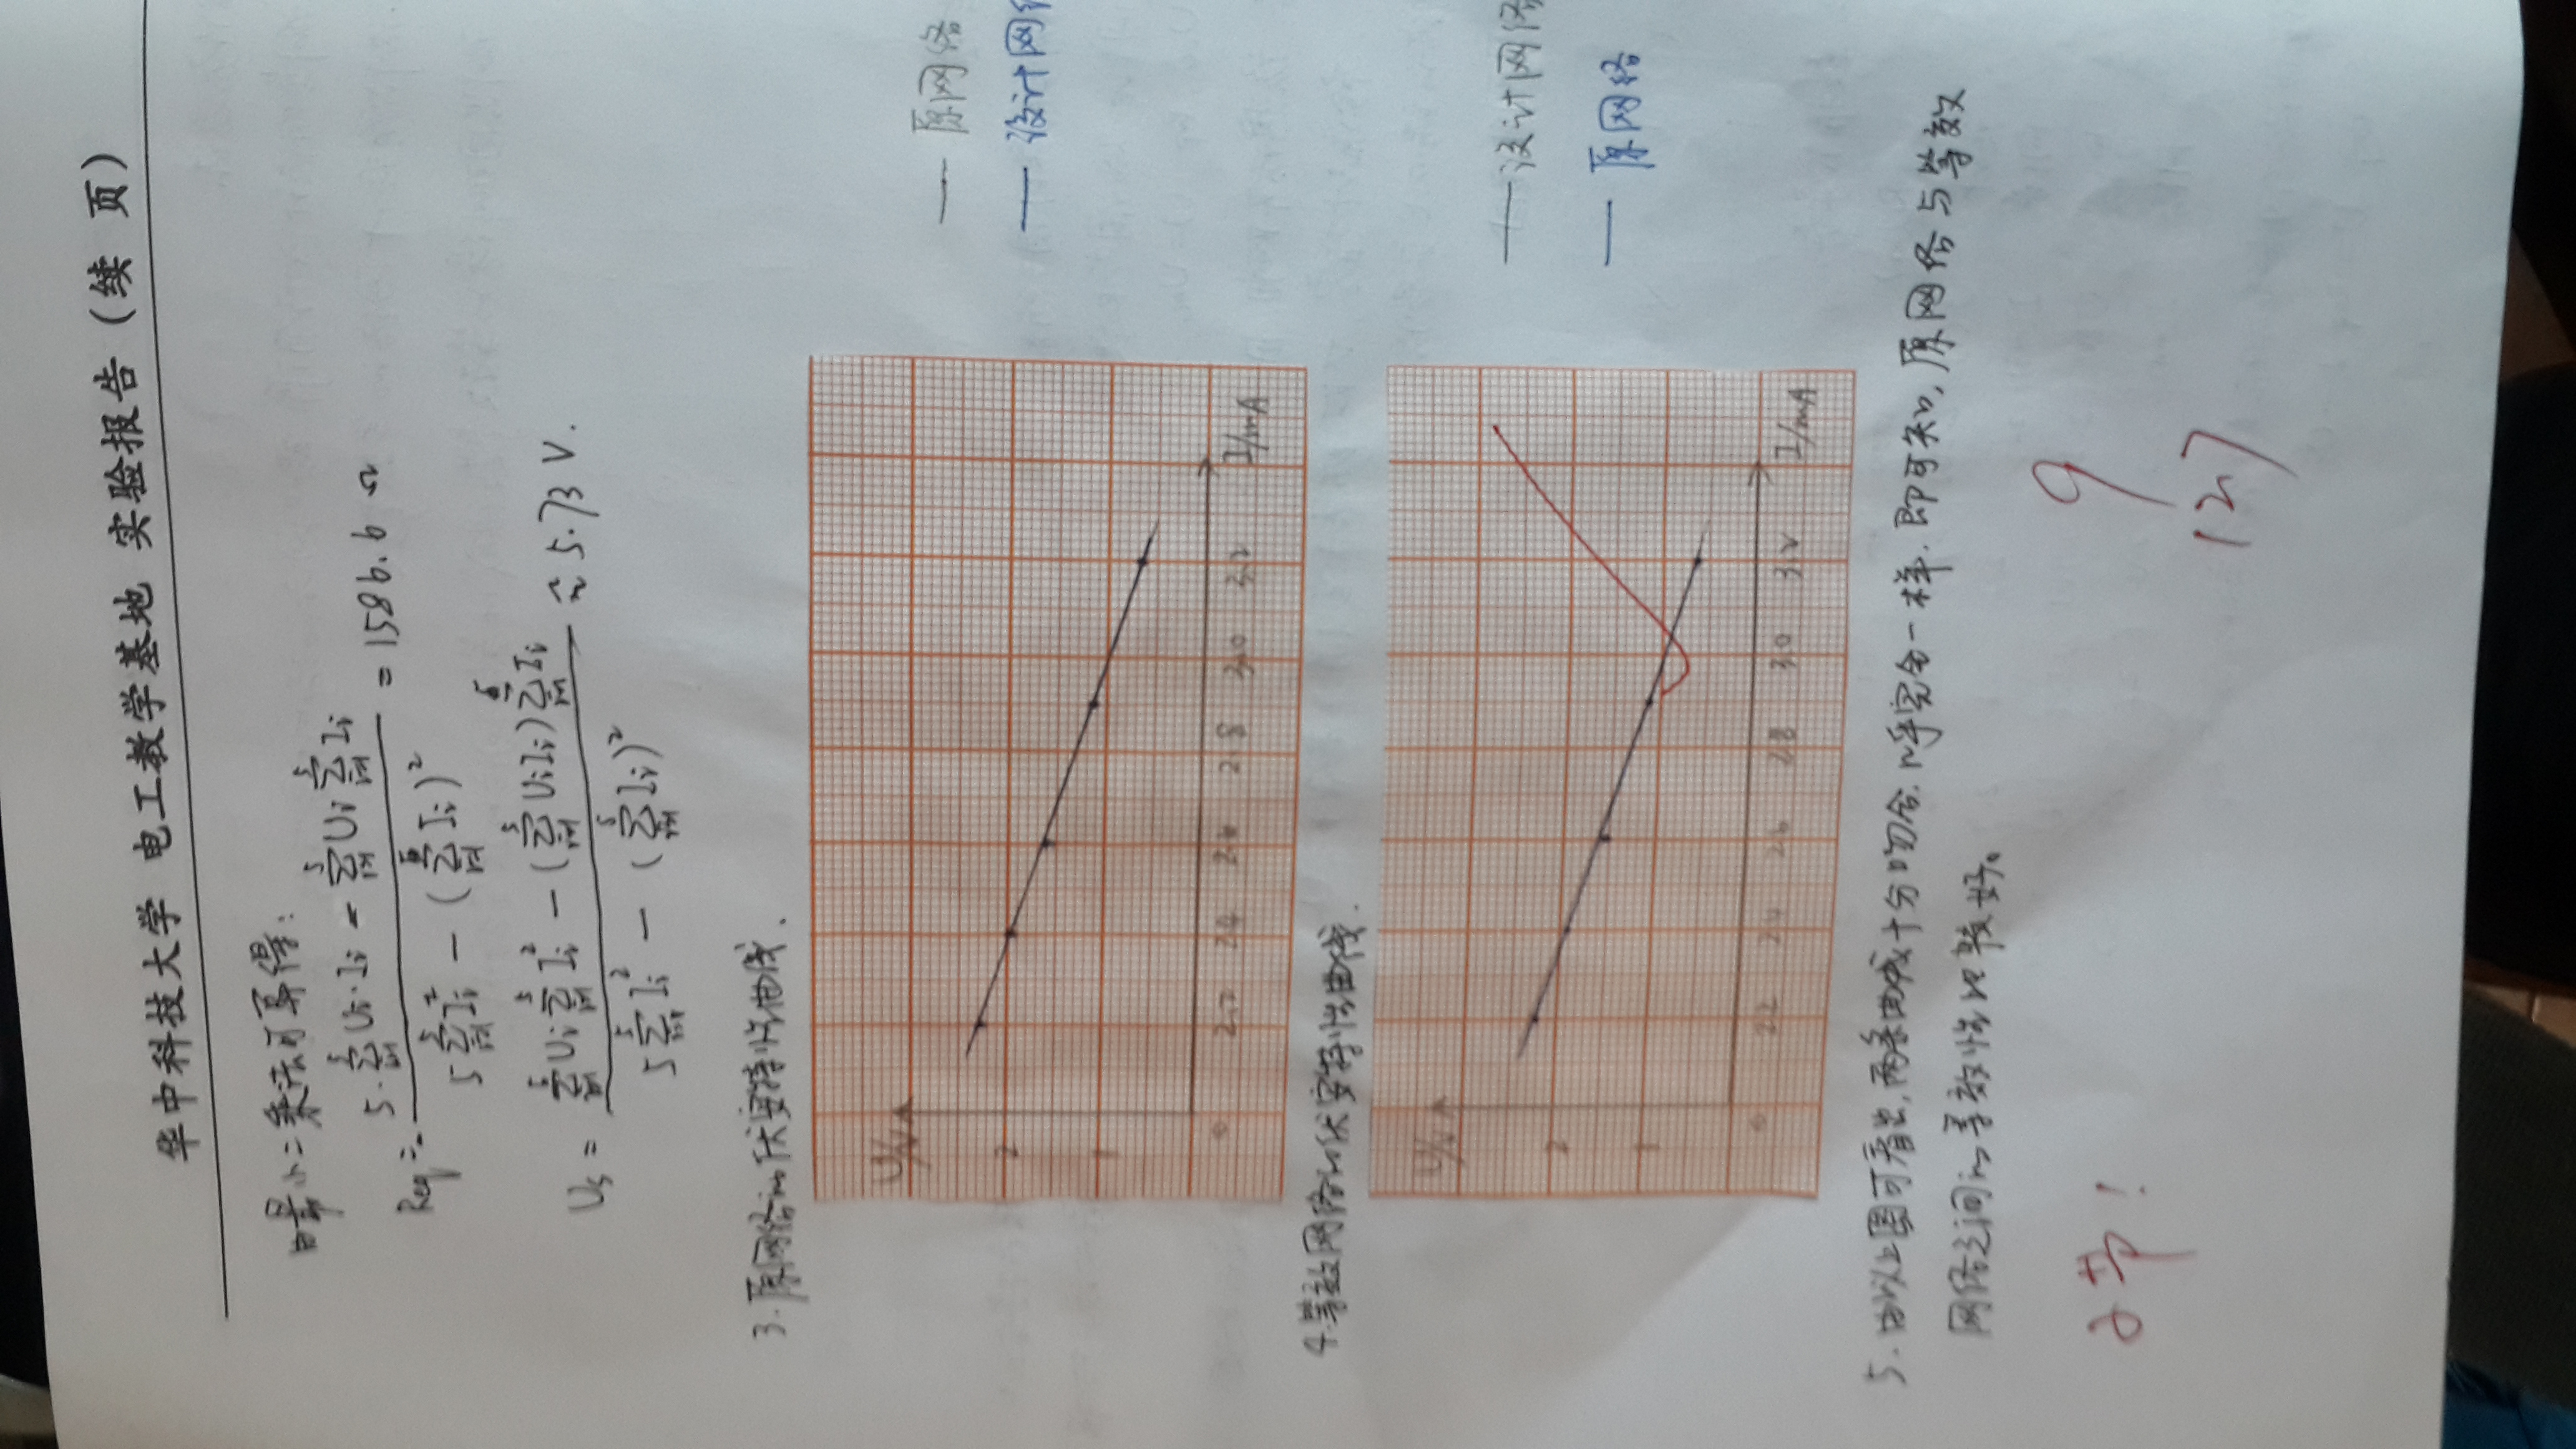 华中科技大学 电工教学基地 实验报告（续 页）
由最小二乘法可算得：
Req = - (5·∑_{i=1}^{5} Ui·Ii - ∑_{i=1}^{5} Ui ∑_{i=1}^{5} Ii) / (5∑_{i=1}^{5} Ii² - (∑_{i=1}^{5} Ii)²) = 1586.6 Ω
Us = (∑_{i=1}^{5} Ui ∑_{i=1}^{5} Ii² - (∑_{i=1}^{5} UiIi) ∑_{i=1}^{5} Ii) / (5∑_{i=1}^{5} Ii² - (∑_{i=1}^{5} Ii)²) ≈ 5.73 V.
3.原网络的伏安特性曲线.
U/V
— 原网络
2
— 设计网络
1
0 2.2 2.4 2.6 2.8 3.0 3.2 I/mA
4.等效网络的伏安特性曲线.
U/V
— 设计网络
2
— 原网络
1
0 2.2 2.4 2.6 2.8 3.0 3.2 I/mA
5. 由以上图可看出,两条曲线十分吻合.几乎完全一样.即可知,原网络与等效
网络之间的等效性比较好。
9
12.7